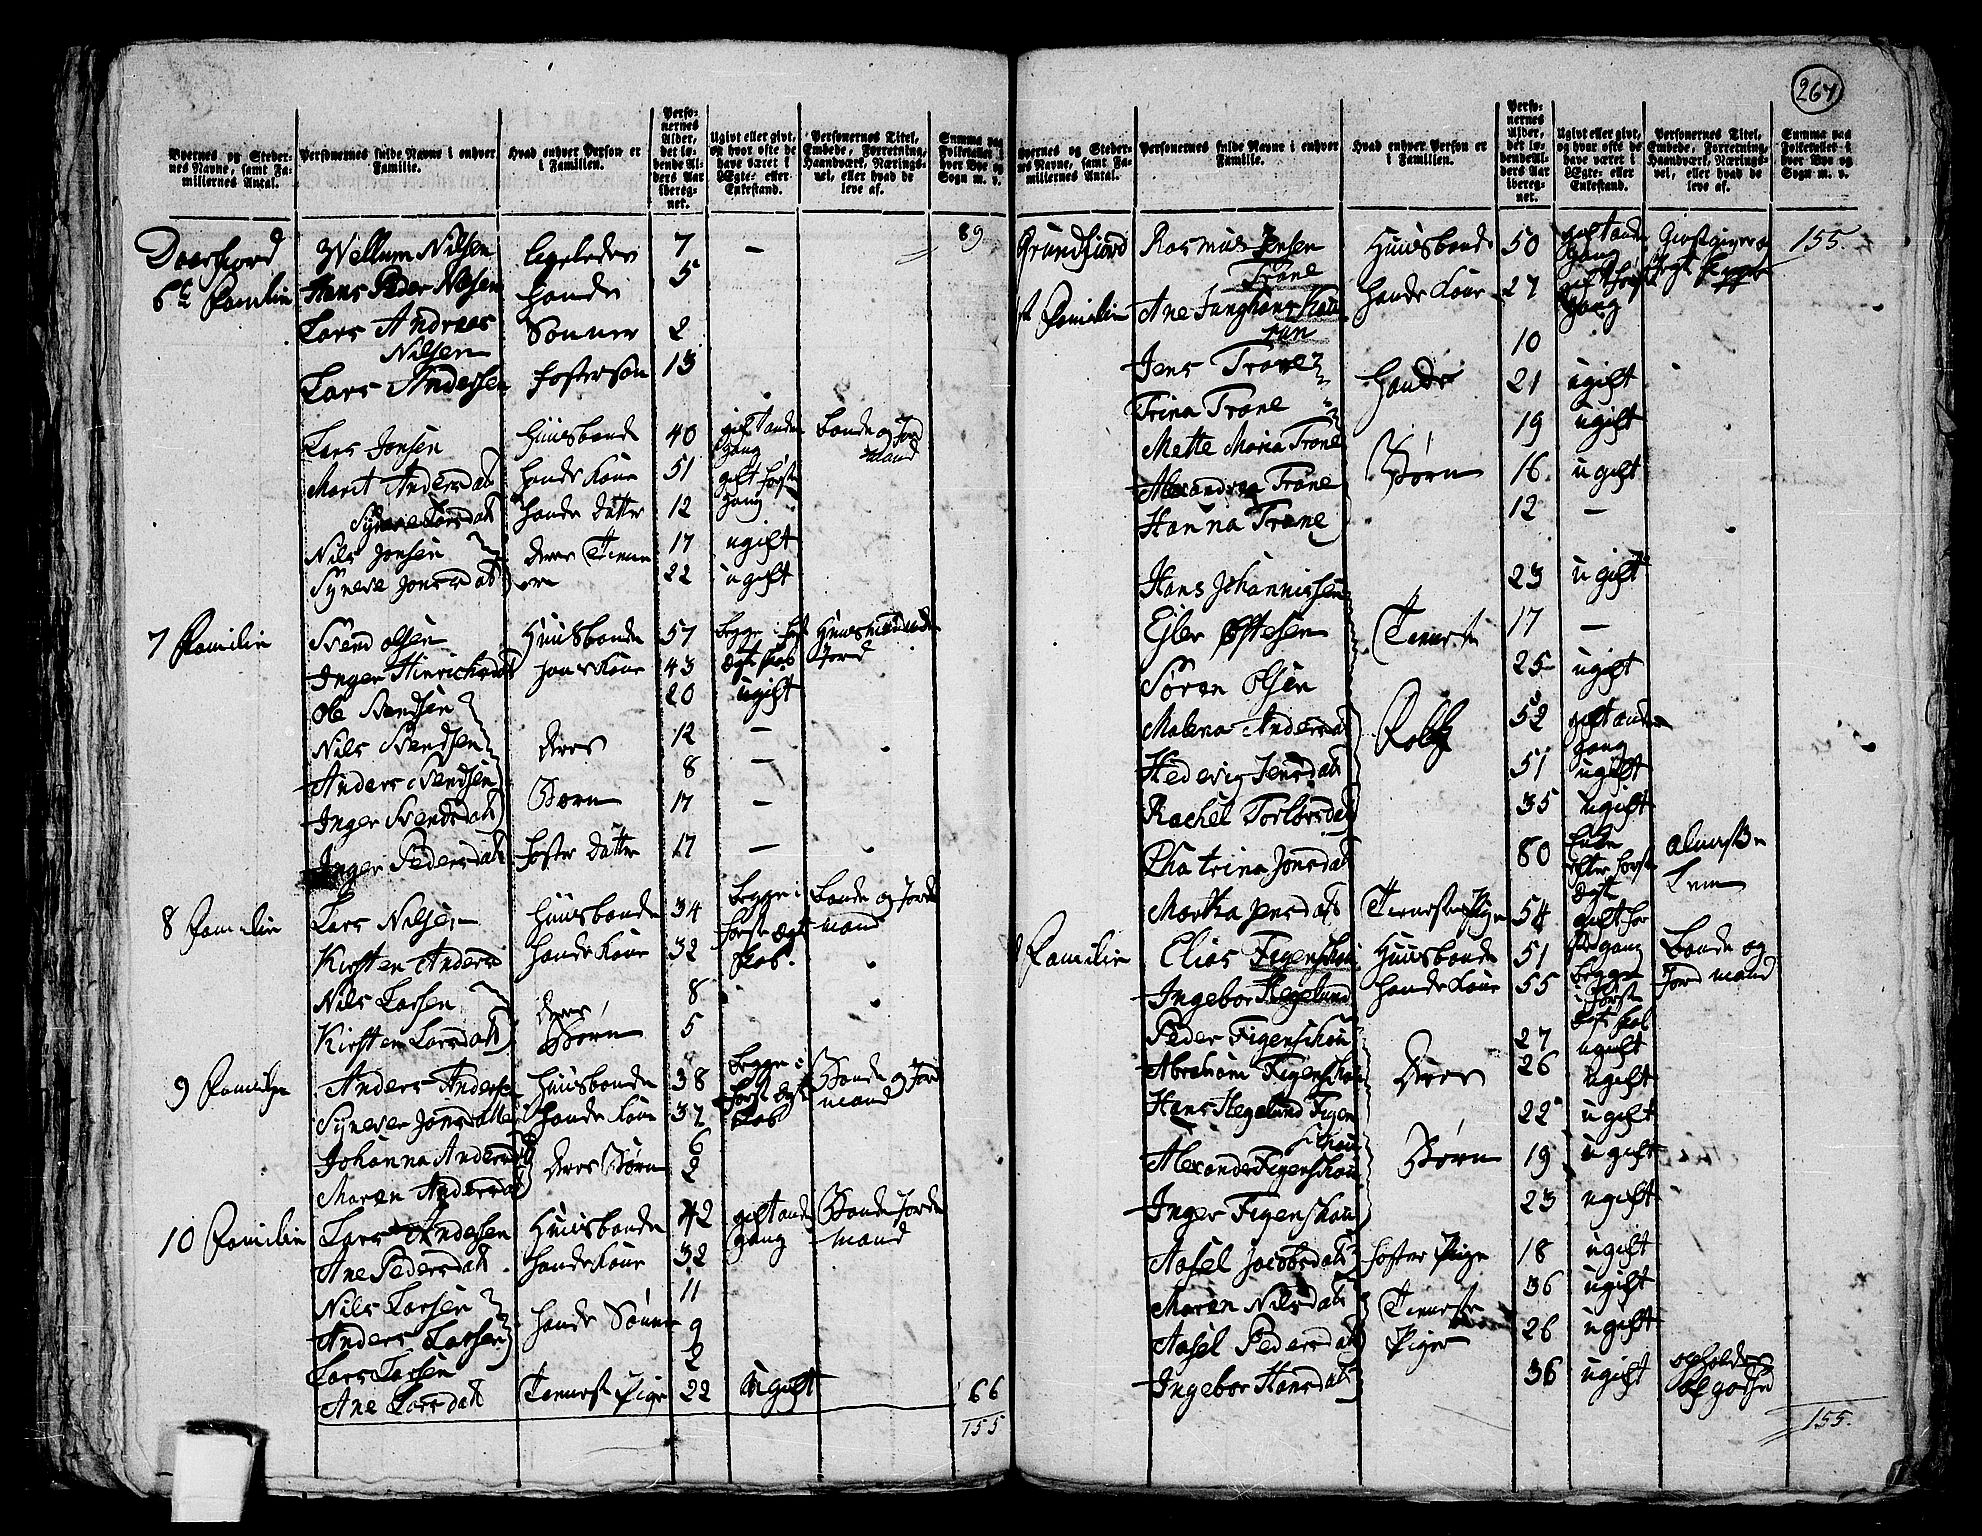 264
Byernes og Steder-
nes Navne, samt Fa-
miliernes Antal.
Personernes fulde Navne i enhver
Familie.
Hvad enhver Person er
i Familien.
Perso-
nernes
Alder,
det lø-
bende Al-
ders Aar
ibereg-
net.
Ugivt eller givt,
og hvor ofte de
have været i
Ægte- eller
Enkestand.
Personernes Titel,
Embede, Forretning,
Haandværk, Nærings-
vei, eller hvad de
leve af.
Summa paa
Folketallet i
hver Bye og
Sogn m. v.
89
Wellum Nilsen 7 —
6te Familie Hans Peder Nilsen hands 5
Lars Andreas Sønner 2
Nilsen
Lars Andersen fostersøn 13
Lars Jonsen Huusbonde 40 gift anden Bonde og Jord
gang mand
Marit Andersdat hands Kone 51 gift første
gang
Synneve Larsdat hands datter 12
Nils Jonsen deres Tienne 17 ugift
Syneve Jonsdat re 22 ugift
7 Familie Svend Olsen Huusbonde 57 begge i first Huusmand med
Inger Hinrichsdat hans Kone 43 Ægteskab Jord
Ole Svendsen 20 ugift
Nils Svendsen deres 12 —
Anders Svendsen 8 —
Inger Svendsdat Børn 17 —
Inger Pedersdat foster datter 17 —
8 Familie Lars Nilsen Huusbonde 34 begge i Bonde og Jord
første Ægte mand
Kirsten Andersd hands Kone 32 skab.
Nils Larsen deres 8
Kirsten Larsdat Børn 5
9 Familie Anders Andersen Huusbonde 38 begge i Bonde og Jord
første Ægte mand
Syneve Jonsdatter hands Kone 37 skab
Johanna Andersd deres Børn 6
Maren Andersdat 2
10 Familie Lars Andersen Huusbonde 42 gift anden Bonde Jord
gang mand
Ane Pedersdat hands Kone 32
Nils Larsen 11
Anders Larsen hands Sønner 9
Lars Larsen 2
Ane Larsdat Tienneste Pige 22 ugift 66
155
Byernes og Steder-
nes Navne, samt Fa-
miliernes Antal.
Personernes fulde Navne i enhver
Familie.
Hvad enhver Person er
i Familien.
Perso-
nernes
Alder,
det lø-
bende Al-
ders Aar
ibereg-
net.
Ugivt eller givt,
og hvor ofte de
have været i
Ægte- eller
Enkestand.
Personernes Titel,
Embede, Forretning,
Haandværk, Nærings-
vei, eller hvad de
leve af.
Summa paa
Folketallet i
hver Bye og
Sogn m. v.
Grundfiord Rasmus Jensen Huusbonde 50 gift anden Giestgiver og 155.
Trane gang
Familie Ane Junghans hands Kone 27 gift første
gang
Jens Trane 10
Trina Trane hands 21 ugift
Mette Maria Trane 19 ugift
Alexandrea Trane Børn 16 ugift
Hanna Trane 12 —
Hans Johannissen 23 ugift
Ejler Østesen Tieneste 17 —
Søren Olsen 25 ugift
Malena Andersdat Folk 52 gift anden
gang
Hedevig Jensdat 51 ugift
Rachel Torlorsdat 35 ugift
Chatrina Jonsdat 80 Enke
efter første
Martha Jensdat Tieneste Pige 54 gift før
Familie Elias Figenschou Huusbonde 51 begge Bonde og
Ingebor Hegelund hands Kone 55 i første Jord mand
Peder Figenschou 27 ugift
Abraham Figenschou deres 26 ugift
Hans Hegelund Figen 22 ugift
schou
Alexander Figenschou Børn 19 ugift
Inger Figenschou 23 ugift
Aasel Jacobsdat foster Pige 18 ugift
Maren Nilsdat Tieneste 36 ugift
Aasel Pedersdat Piger 26 ugift
Ingebor Hansdat 36 ugift
155.